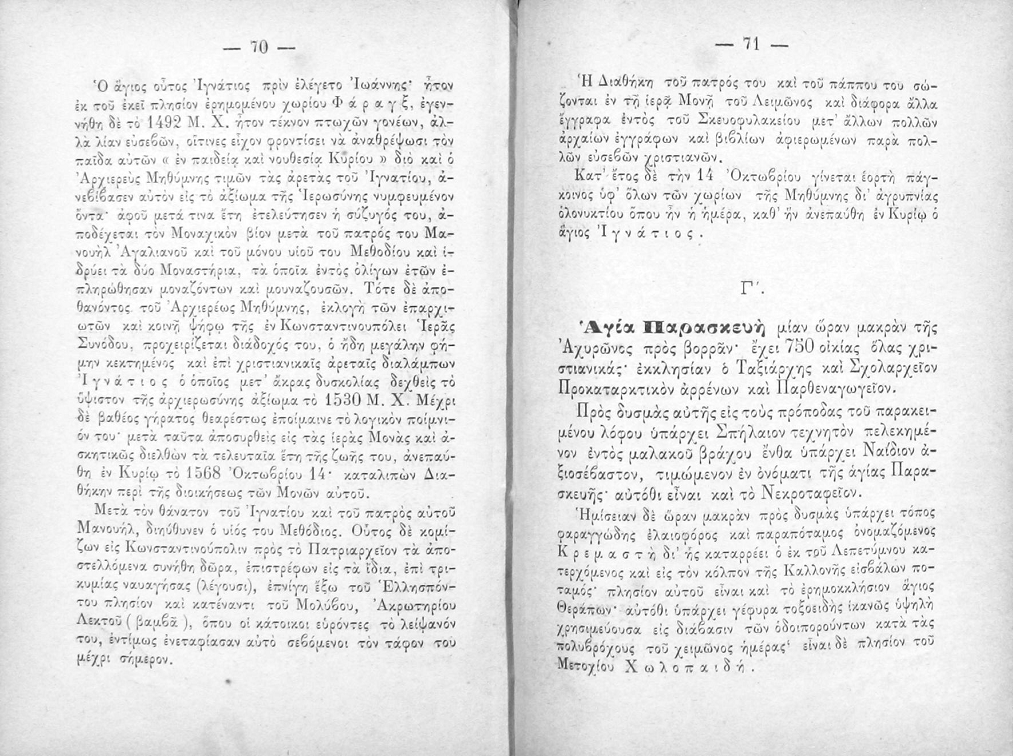 — 70 —
Ὁ ἅγιος οὗτος Ἰγνάτιος πρὶν ἐλέγετο Ἰωάννης· ἦτον
ἐκ τοῦ ἐκεῖ πλησίον ἐρημομένου χωρίου Φάραγξ, ἐγεν-
νήθη δὲ τὸ 1492 Μ. Χ. ἦτον τέκνον πτωχῶν γονέων, ἀλ-
λὰ λίαν εὐσεβῶν, οἵτινες εἶχον φροντίσει νὰ ἀναθρέψωσι τὸν
παῖδα αὐτῶν « ἐν παιδείᾳ καὶ νουθεσίᾳ Κυρίου » διὸ καὶ ὁ
Ἀρχιερεὺς Μηθύμνης τιμῶν τὰς ἀρετὰς τοῦ Ἰγνατίου, ἀ-
νεβίβασεν αὐτὸν εἰς τὸ ἀξίωμα τῆς Ἱερωσύνης νυμφευμένον
ὄντα· ἀφοῦ μετά τινα ἔτη ἐτελεύτησεν ἡ σύζυγός του, ἀ-
ποδέχεται τὸν Μοναχικὸν βίον μετὰ τοῦ πατρός του Μα-
νουὴλ Ἀγαλιανοῦ καὶ τοῦ μόνου υἱοῦ του Μεθοδίου καὶ ἱ-
δρύει τὰ δύο Μοναστήρια, τὰ ὁποῖα ἐντὸς ὀλίγων ἐτῶν ἐ-
πληρώθησαν μοναζόντων καὶ μουναζουσῶν. Τότε δὲ ἀπο-
θανόντος τοῦ Ἀρχιερέως Μηθύμνης, ἐκλογῇ τῶν ἐπαρχι-
ωτῶν καὶ κοινῇ ψήφῳ τῆς ἐν Κωνσταντινουπόλει Ἱερᾶς
Συνόδου, προχειρίζεται διάδοχός του, ὁ ἤδη μεγάλην φή-
μην κεκτημένος καὶ ἐπὶ χριστιανικαῖς ἀρεταῖς διαλάμπων
Ἰγνάτιος ὁ ὁποῖος μετ' ἄκρας δυσκολίας δεχθεὶς τὸ
ὕψιστον τῆς ἀρχιερωσύνης ἀξίωμα τὸ 1530 Μ. Χ. Μέχρι
δὲ βαθέος γήρατος θεαρέστως ἐποίμαινε τὸ λογικὸν ποίμνι-
όν του· μετὰ ταῦτα ἀποσυρθεὶς εἰς τὰς ἱερὰς Μονὰς καὶ ἀ-
σκητικῶς διελθὼν τὰ τελευταῖα ἔτη τῆς ζωῆς του, ἀνεπαύ-
θη ἐν Κυρίῳ τὸ 1568 Ὀκτωβρίου 14· καταλιπὼν Δια-
θήκην περὶ τῆς διοικήσεως τῶν Μονῶν αὐτοῦ.
Μετὰ τὸν θάνατον τοῦ Ἰγνατίου καὶ τοῦ πατρὸς αὐτοῦ
Μανουήλ, διηύθυνεν ὁ υἱός του Μεθόδιος. Οὗτος δὲ κομί-
ζων εἰς Κωνσταντινούπολιν πρὸς τὸ Πατριαρχεῖον τὰ ἀπο-
στελλόμενα συνήθη δῶρα, ἐπιστρέφων εἰς τὰ ἴδια, ἐπὶ τρι-
κυμίας ναυαγήσας (λέγουσι), ἐπνίγη ἔξω τοῦ Ἑλλησπόν-
του πλησίον καὶ κατέναντι τοῦ Μολύβου, Ἀκρωτηρίου
Λεκτοῦ ( βαμβᾶ ), ὅπου οἱ κάτοικοι εὑρόντες τὸ λείψανόν
του, ἐντίμως ἐνεταφίασαν αὐτὸ σεβόμενοι τὸν τάφον του
μέχρι σήμερον.
— 71 —
Ἡ Διαθήκη τοῦ πατρός του καὶ τοῦ πάππου του σώ-
ζονται ἐν τῇ ἱερᾷ Μονῇ τοῦ Λειμῶνος καὶ διάφορα ἄλλα
ἔγγραφα ἐντὸς τοῦ Σκευοφυλακείου μετ' ἄλλων πολλῶν
ἀρχαίων ἐγγράφων καὶ βιβλίων ἀφιερωμένων παρὰ πολ-
λῶν εὐσεβῶν χριστιανῶν.
Κατ' ἔτος δὲ τὴν 14 Ὀκτωβρίου γίνεται ἑορτὴ πάγ-
κοινος ὑφ' ὅλων τῶν χωρίων τῆς Μηθύμνης δι' ἀγρυπνίας
ὁλονυκτίου ὅπου ἦν ἡ ἡμέρα, καθ' ἣν ἀνεπαύθη ἐν Κυρίῳ ὁ
ἅγιος Ἰγνάτιος.
Γ΄.
Ἁγία Παρασκευὴ μίαν ὥραν μακρὰν τῆς
Ἀχυρῶνος πρὸς βορρᾶν· ἔχει 750 οἰκίας ὅλας χρι-
στιανικάς· ἐκκλησίαν ὁ Ταξιάρχης καὶ Σχολαρχεῖον
Προκαταρκτικὸν ἀρρένων καὶ Παρθεναγωγεῖον.
Πρὸς δυσμὰς αὐτῆς εἰς τοὺς πρόποδας τοῦ παρακει-
μένου λόφου ὑπάρχει Σπήλαιον τεχνητὸν πελεκημέ-
νον ἐντὸς μαλακοῦ βράχου ἔνθα ὑπάρχει Ναΐδιον ἀ-
ξιοσέβαστον, τιμώμενον ἐν ὀνόματι τῆς ἁγίας Παρα-
σκευῆς· αὐτόθι εἶναι καὶ τὸ Νεκροταφεῖον.
Ἡμίσειαν δὲ ὥραν μακρὰν πρὸς δυσμὰς ὑπάρχει τόπος
φαραγγώδης ἐλαιοφόρος καὶ παραπόταμος ὀνομαζόμενος
Κρεμαστὴ δι' ἧς καταρρέει ὁ ἐκ τοῦ Λεπετύμνου κα-
τερχόμενος καὶ εἰς τὸν κόλπον τῆς Καλλονῆς εἰσβάλων πο-
ταμός· πλησίον αὐτοῦ εἶναι καὶ τὸ ἐρημοκκλήσιον ἅγιος
Θεράπων· αὐτόθι ὑπάρχει γέφυρα τοξοειδὴς ἱκανῶς ὑψηλὴ
χρησιμεύουσα εἰς διάβασιν τῶν ὁδοιπορούντων κατὰ τὰς
πολυβρόχους τοῦ χειμῶνος ἡμέρας· εἶναι δὲ πλησίον τοῦ
Μετοχίου Χωλοπαιδῆ.